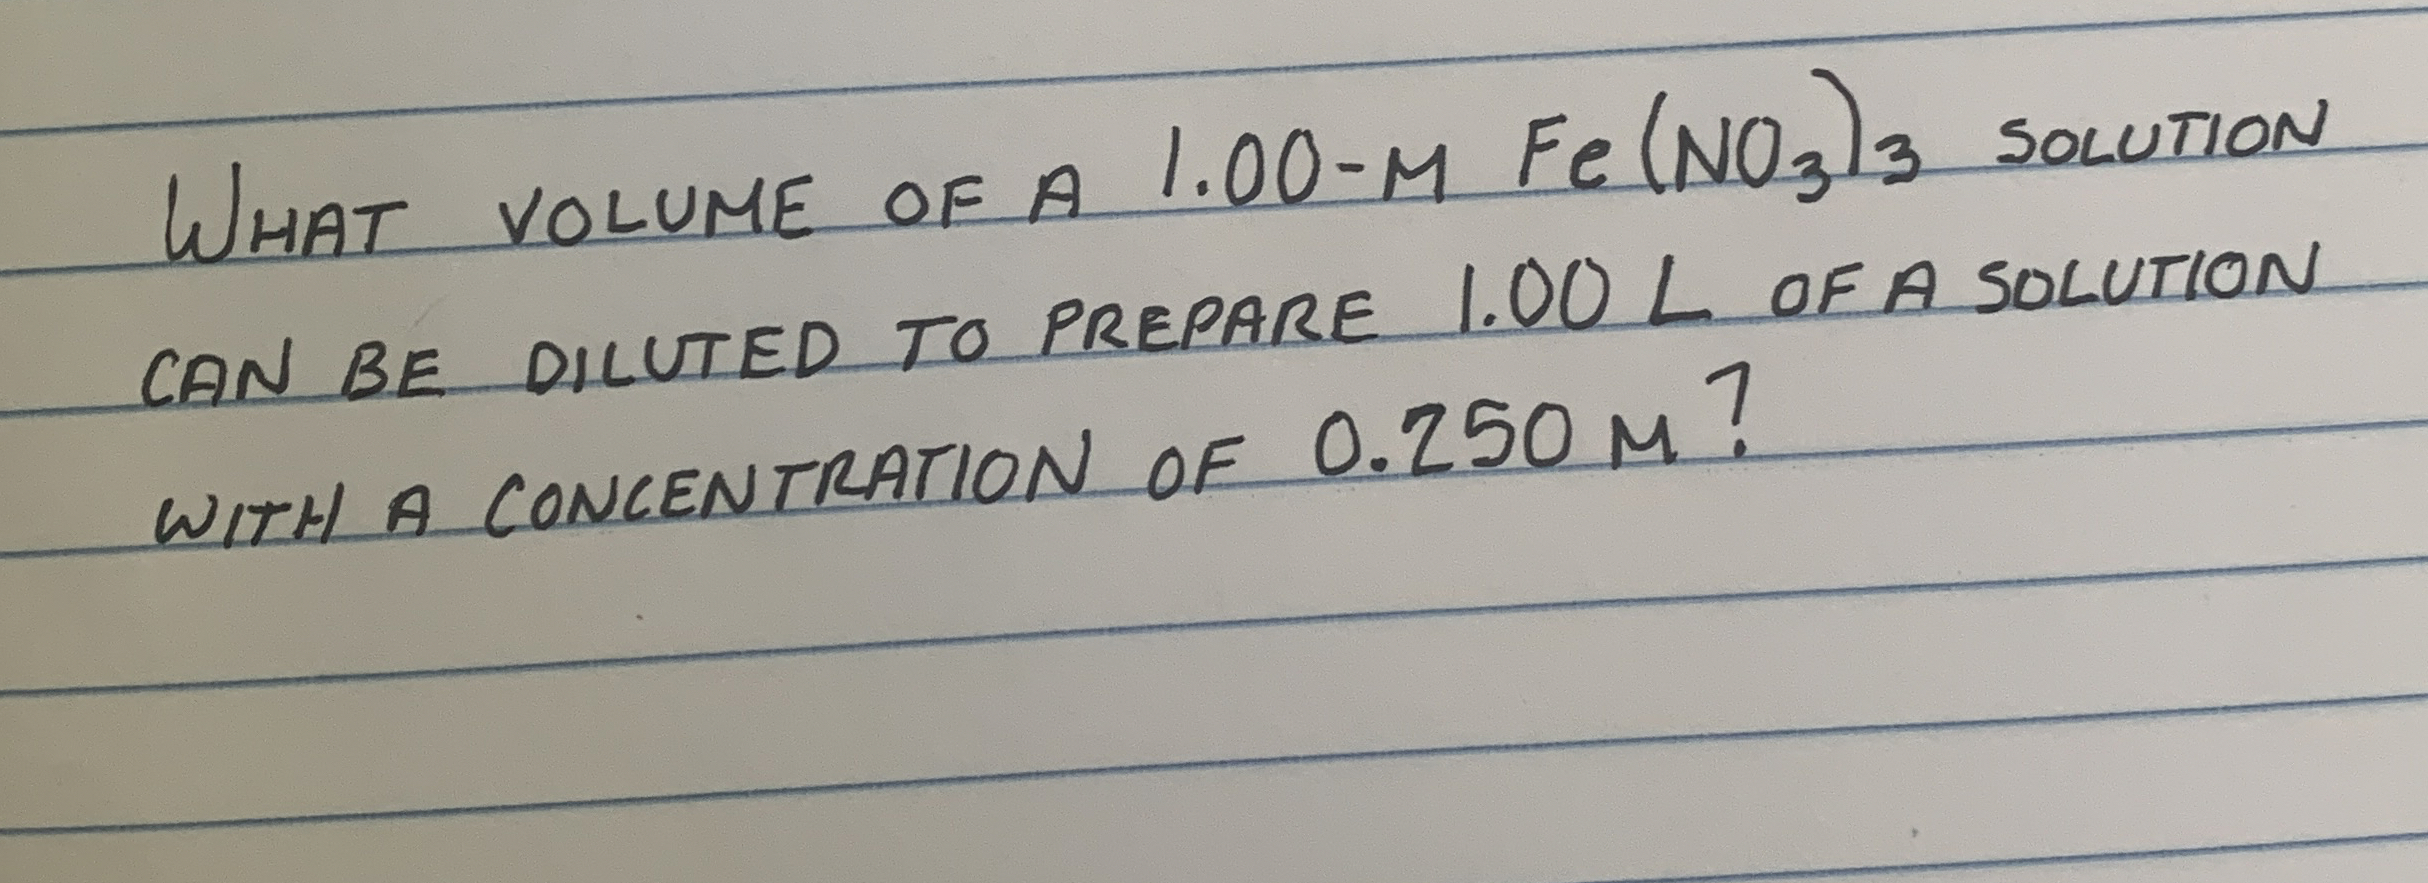 WHAT VOLUME OF A 1.00-M Fe(NO₃)₃ SOLUTION
CAN BE DILUTED TO PREPARE 1.00 L OF A SOLUTION
WITH A CONCENTRATION OF 0.250 M?